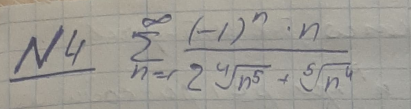 N4 ∑_{n=1}^{∞} \frac{(-1)^n · n}{2\sqrt[4]{n^5} + \sqrt[5]{n^4}}